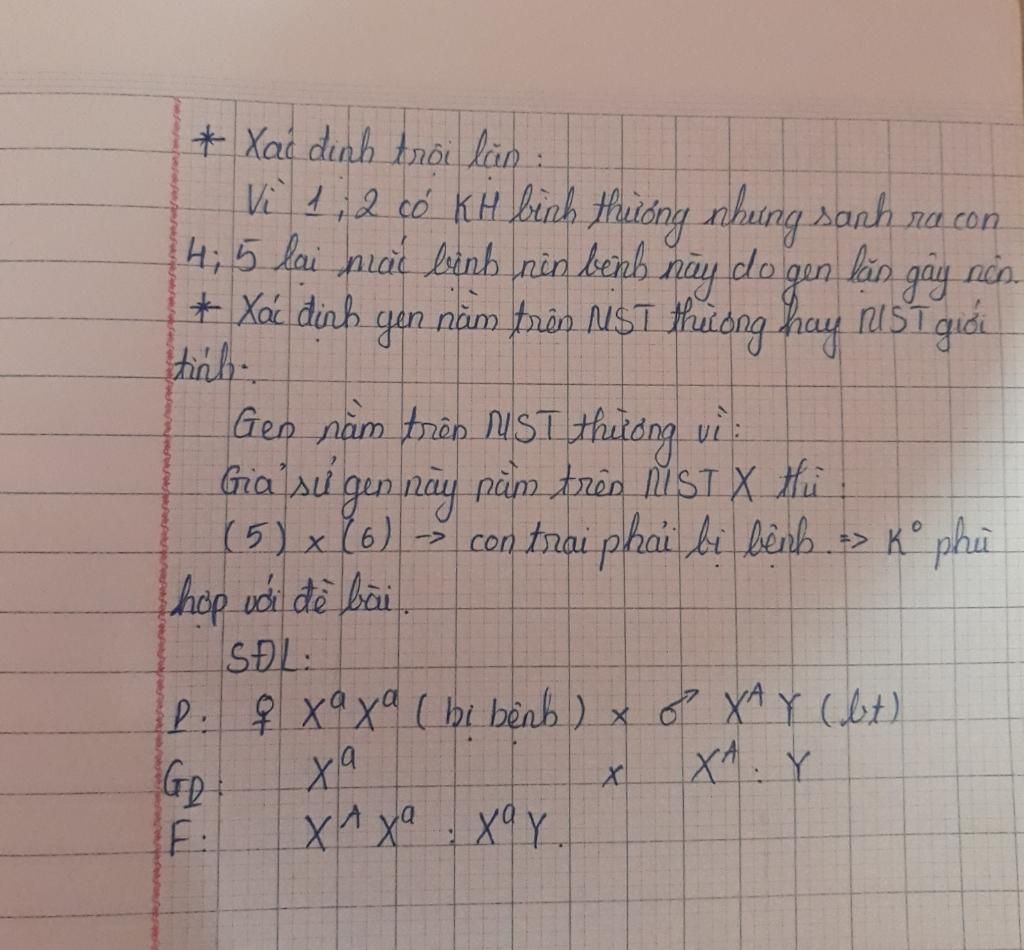 * Xác định trội lặn:
Vì 1; 2 có KH bình thường nhưng sanh ra con
4; 5 lại mắc bệnh nên bệnh này do gen lặn gây nên.
* Xác định gen nằm trên NST thường hay NST giới
tính:
Gen nằm trên NST thường vì:
Giả sử gen này nằm trên NST X thì:
(5) x (6) -> con trai phải bị bệnh. => K° phù
hợp với đề bài.
SĐL:
P: ♀ XᵃXᵃ (bị bệnh) x ♂ Xᴬ Y (bt)
Gp: Xᵃ x Xᴬ : Y
F: Xᴬ Xᵃ : Xᵃ Y.